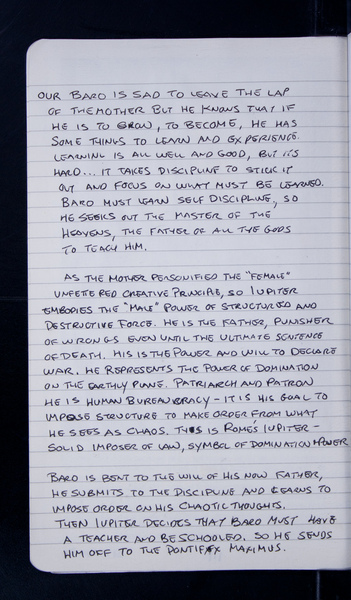 OUR BARD IS SAD TO LEAVE THE LAP
OF THE MOTHER BUT HE KNOWS THAT IF
HE IS TO GROW, TO BECOME, HE HAS
SOME THINGS TO LEARN AND EXPERIENCE.
LEARNING IS ALL WELL AND GOOD, BUT ITS
HARD... IT TAKES DISCIPLINE TO STICK IT
OUT AND FOCUS ON WHAT MUST BE LEARNED.
BARD MUST LEARN SELF DISCIPLINE, SO
HE SEEKS OUT THE MASTER OF THE
HEAVENS, THE FATHER OF ALL THE GODS
TO TEACH HIM.
AS THE MOTHER PERSONIFIED THE "FEMALE"
UNFETERED CREATIVE PRINCIPLE, SO IUPITER
EMBODIES THE "MALE" POWER OF STRUCTURED AND
DESTRUCTIVE FORCE. HE IS THE FATHER, PUNISHER
OF WRONGS EVEN UNTIL THE ULTIMATE SENTENCE
OF DEATH. HIS IS THE POWER AND WILL TO DECLARE
WAR. HE REPRESENTS THE POWER OF DOMINATION
ON THE EARTHLY PLANE. PATRIARCH AND PATRON
HE IS HUMAN BUREAUCRACY - IT IS HIS GOAL TO
IMPOSE STRUCTURE TO MAKE ORDER FROM WHAT
HE SEES AS CHAOS. THIS IS ROME'S IUPITER -
SOLID IMPOSER OF LAW, SYMBOL OF DOMINATION & POWER
BARD IS BENT TO THE WILL OF HIS NOW FATHER,
HE SUBMITS TO THE DISCIPLINE AND LEARNS TO
IMPOSE ORDER ON HIS CHAOTIC THOUGHTS.
THEN IUPITER DECIDES THAT BARD MUST HAVE
A TEACHER AND BE SCHOOLED. SO HE SENDS
HIM OFF TO THE PONTIFEX MAXIMUS.